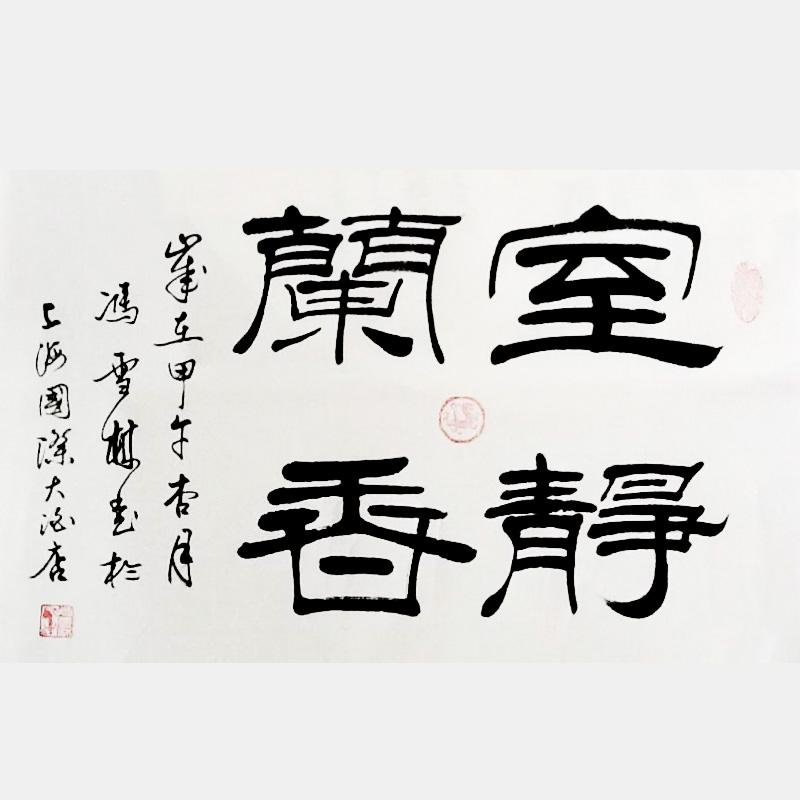 室靜
蘭香
歲在甲午杏月
馮雪書於
上海國際大酒店